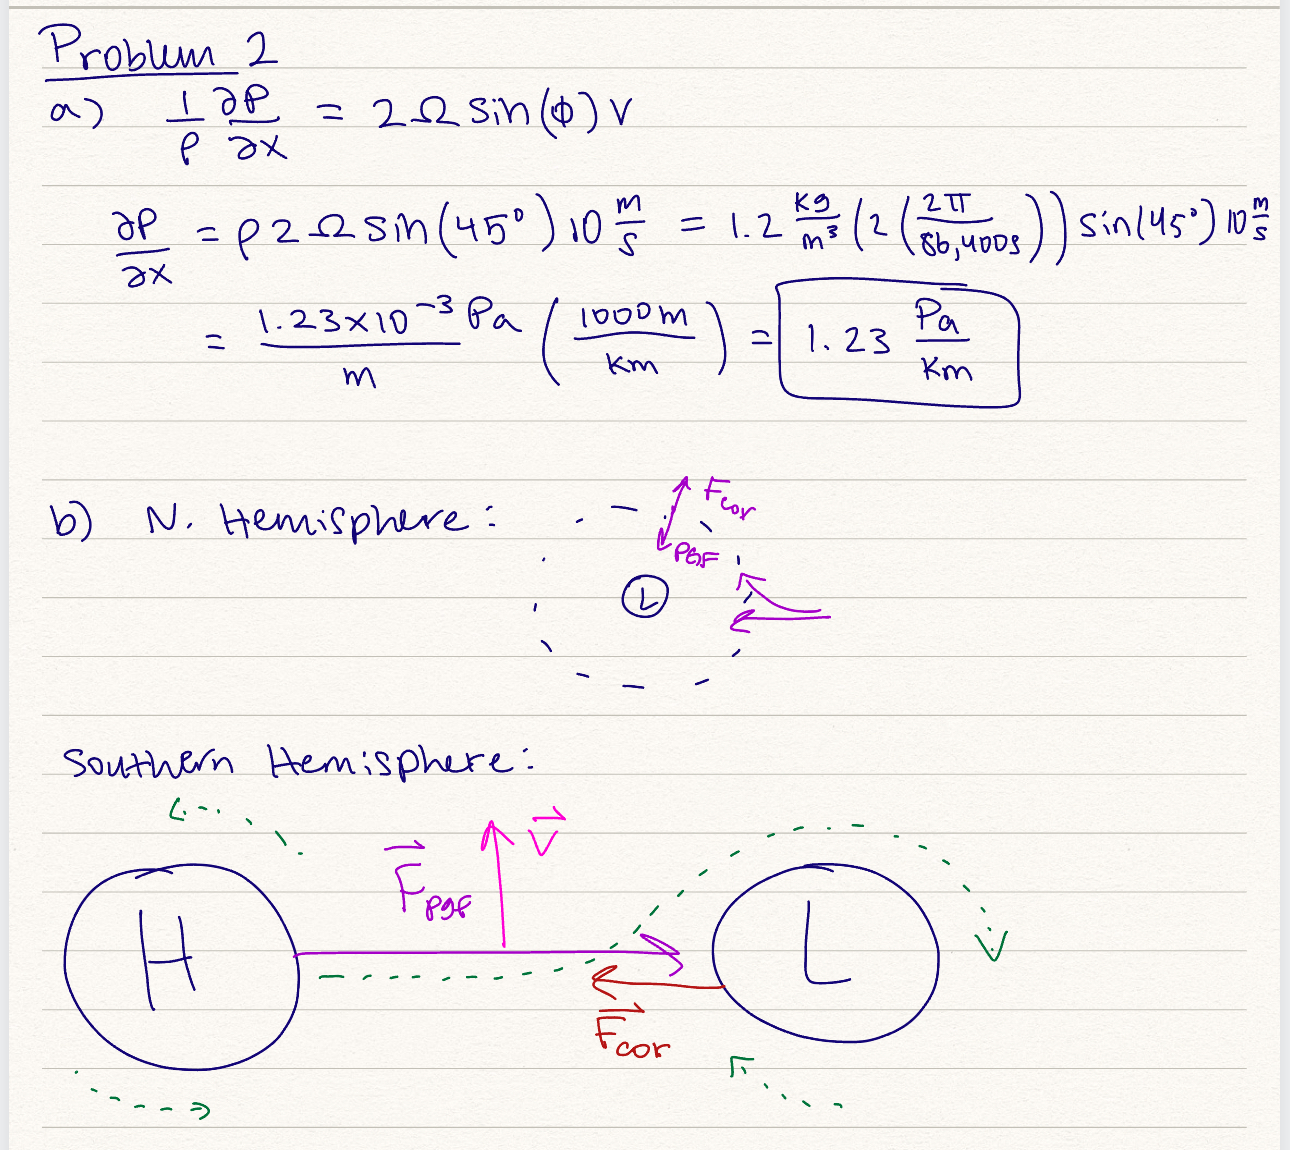 Problem 2
a) 1/ρ ∂P/∂x = 2Ω sin(ϕ) V
∂P/∂x = ρ 2 Ω sin(45°) 10 m/s = 1.2 kg/m³ (2 (2π/86,400s)) sin(45°) 10 m/s
= 1.23×10⁻³ Pa/m (1000m/km) = 1.23 Pa/km
b) N. Hemisphere:
Fcor
PGF
L
Southern Hemisphere:
V
Fpgf
H
L
Fcor